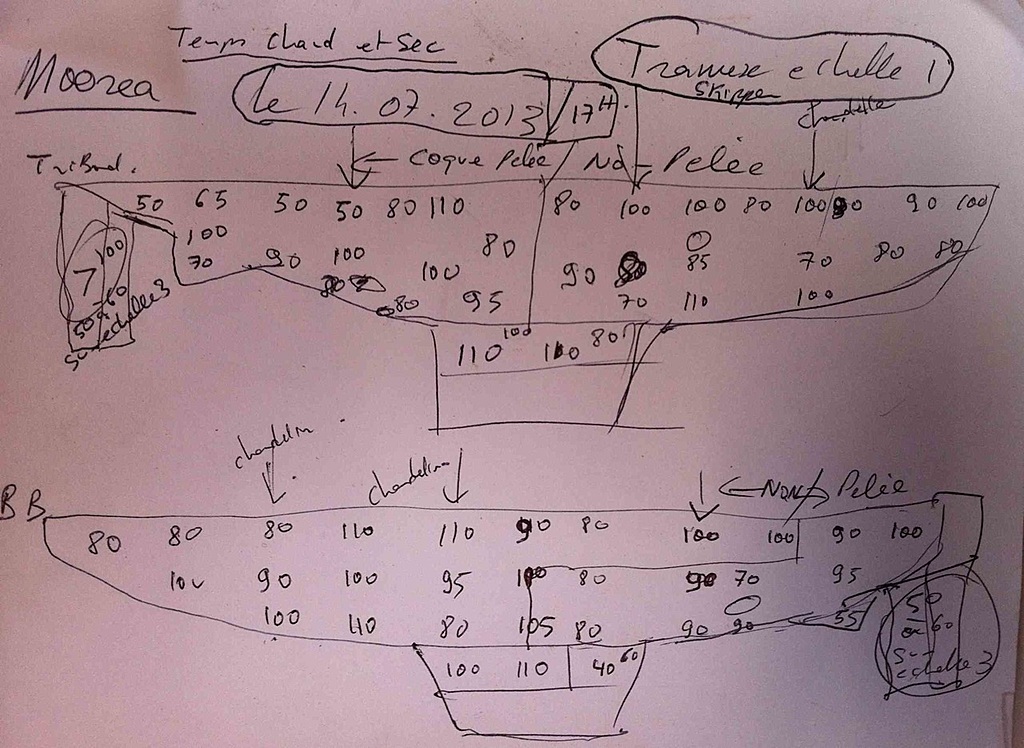 Temps chaud et Sec
Moorea
le 14.07.2013 / 17H
echelle 1
Skipper
Chandelle
Tribord.
Coque Pelée / Non Pelée
50 65 50 50 80 110 80 100 100 80 100 90 90 100
100 100 80 85
70 90 100 90 80 70 80 80
80 95 70 110 100
7 100
50 60
sur echelle 3
110 100 110 80
chandelier
chandelier
Non Pelée
BB
80 80 80 110 110 90 80 100 100 90 100
100 90 100 95 100 80 90 70 95
100 110 80 105 80 90 90 55
50
ou 60
sur
echelle 3
100 110 40 60